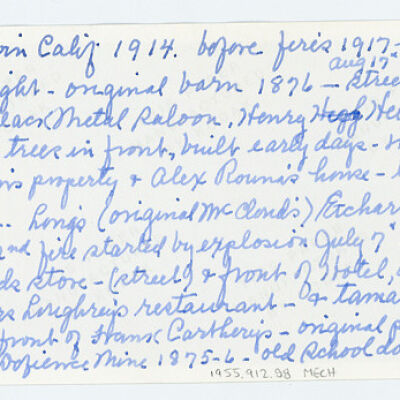 in Calif 1914. before fires 1917-
aug 17"
ght - original barn 1876 - street
Metal Saloon, Henry
trees in front, built early days -
property & Alex Rouna's house -
.. Long's (original McCloud's) Etchar
nd fire started by explosion July 7"
ds store - (street) & front of Hotel,
Loughrey's restaurant - & tama
front of Frank Cartherys - original
Dofience Mine 1875-6 - old School
1955.912.98 MECH